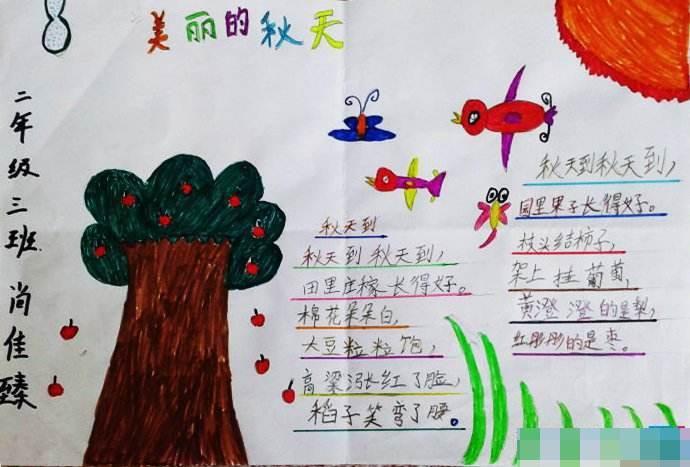 美丽的秋天
二年级三班 尚佳臻
秋天到
秋天到秋天到，
田里庄稼长得好。
棉花朵朵白，
大豆粒粒饱，
高粱涨红了脸，
稻子笑弯了腰。
秋天到秋天到，
园里果子长得好。
枝头结柿子，
架上挂葡萄，
黄澄澄的是梨，
红彤彤的是枣。